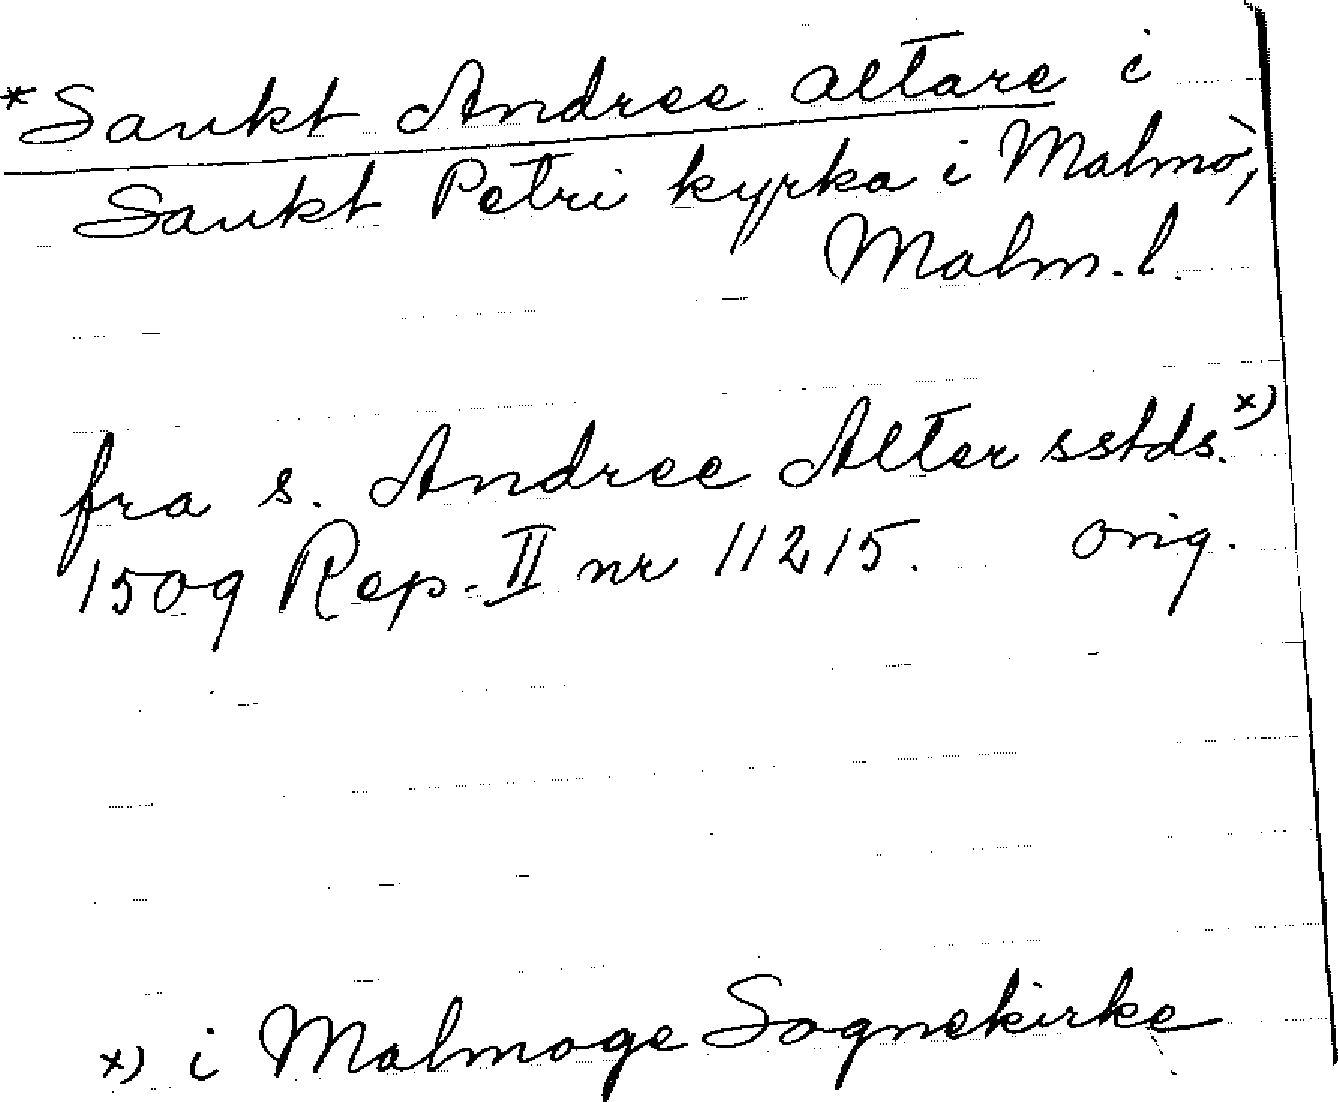 *Sankt Andree altare i
Sankt Petri kyrka i Malmö,
Malm. l.
fra s. Andree Alter sstds. x)
1509 Rep. II nr 11215. orig.
x) i Malmoge Sognekirke